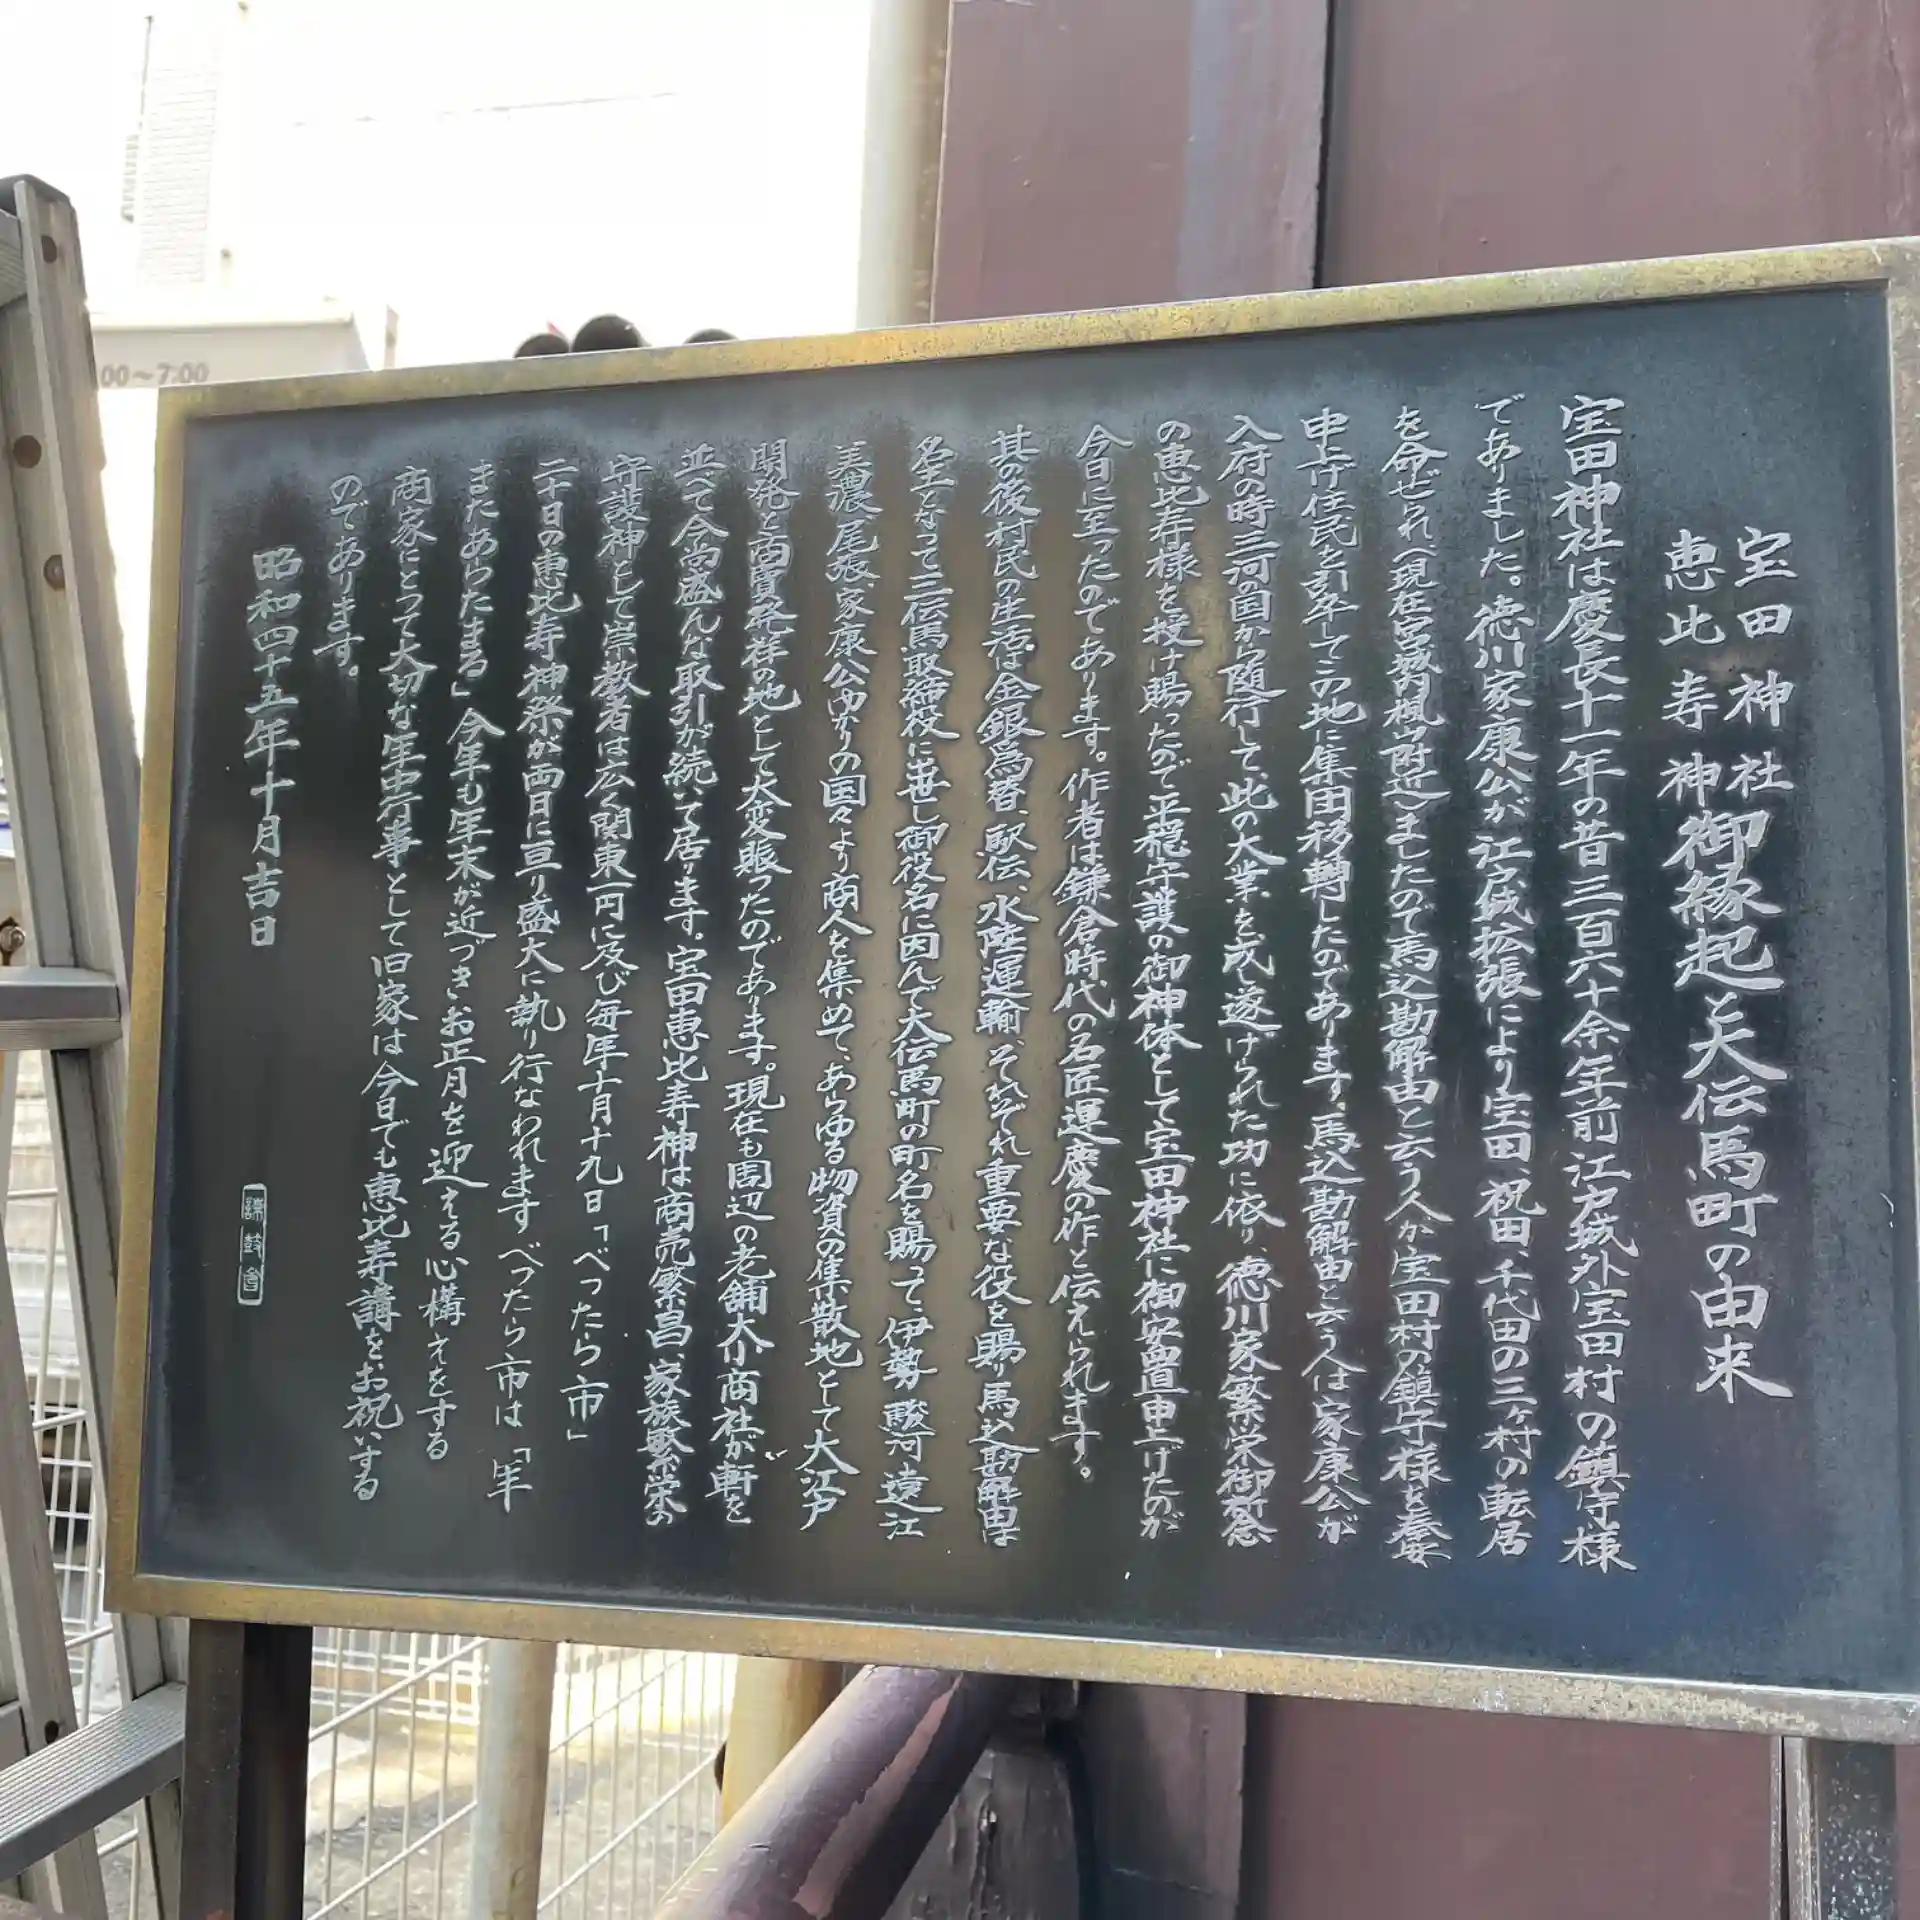 宝田神社
恵比寿神
御縁起と大伝馬町の由来
宝田神社は慶長十一年の昔三百六十余年前江戸城外宝田村の鎮守様
でありました。徳川家康公が江戸城拡張により宝田、祝田、千代田の三ヶ村の転居
を命ぜられ(現在宮城内楓山附近)ましたので馬込勘解由と云う人が宝田村の鎮守様を奉安
申上げ住民を引率してこの地に集団移転したのであります。馬込勘解由と云う人は家康公が
入府の時三河の国から随行して、此の大業を成し遂げられた功に依り、徳川家繁栄御祈念
の恵比寿様を授け賜ったので平穏守護の御神体として宝田神社に御安置申上げたのが
今日に至ったのであります。作者は鎌倉時代の名匠運慶の作と伝えられます。
其の後村民の生活は金銀為替、駅伝、水陸運輸、それぞれ重要な役を賜り馬込勘解由は
名主となって三伝馬取締役に出世し御役名に因んで大伝馬町の町名を賜って、伊勢駿河遠江
美濃尾張家康公ゆかりの国々より商人を集めて、あらゆる物資の集散地として大江戸
開発と商賣発祥の地として大変賑ったのであります。現在も周辺の老舗大小商社が軒を
並べて今尚盛んな取引が続いて居ります、宝田恵比寿神は商売繁昌、家族繁栄の
守護神として崇教者は広く関東一円に及び毎年十月十九日「べったら市」
二十日の恵比寿神祭が両月に亘り盛大に執り行なわれますべったら市は「年
またあらたまる」今年も年末が近づきお正月を迎える心構えをする
商家にとって大切な年中行事として旧家は今日でも恵比寿講をお祝いする
のであります。
昭和四十五年十月吉日
00～7:00